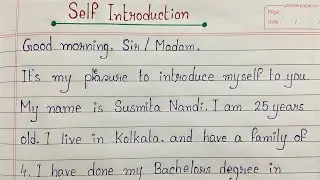 Self Introduction
Page:
Date:
Good morning. Sir / Madam.
It's my pleasure to introduce myself to you.
My name is Susmita Nandi. I am 25 years
old. I live in Kolkata. and have a family of
4. I have done my Bachelors degree in